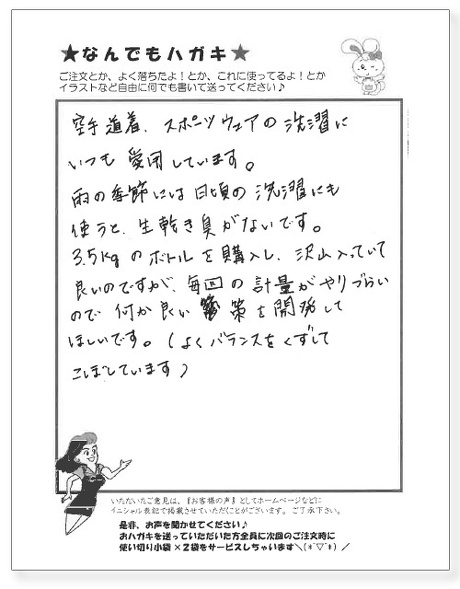 ★なんでもハガキ★
ご注文とか、よく落ちたよ！とか、これに使ってるよ！とか
イラストなど自由に何でも書いて送ってください♪
空手道着、スポーツウェアの洗濯に
いつも愛用しています。
雨の季節には日頃の洗濯にも
使うと、生乾き臭がないです。
3.5Kgのボトルを購入し、沢山入っていて
良いのですが、毎回の計量がやりづらい
ので何か良い策を開発して
ほしいです。(よくバランスをくずして
こぼしています)
いただいたご意見は、『お客様の声』としてホームページなどに
イニシャル表記で掲載させていただくことがございます。ご了承下さい。
是非、お声を聞かせてください♪
おハガキを送っていただいた方全員に次回のご注文時に
使い切り小袋×2袋をサービスしちゃいます＼(*ˊ▽ˋ*)／